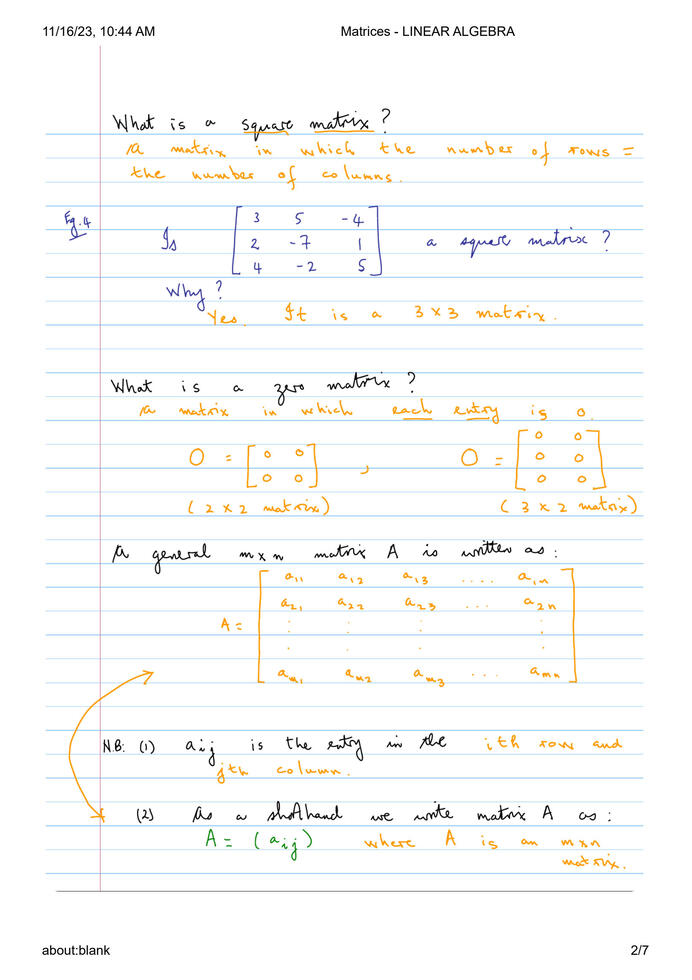 11/16/23, 10:44 AM Matrices - LINEAR ALGEBRA
What is a square matrix?
A matrix in which the number of rows =
the number of columns.
Eg.4
Is [ 3 5 -4 ] a square matrix?
[ 2 -7 1 ]
[ 4 -2 5 ]
Why?
Yes. It is a 3 x 3 matrix.
What is a zero matrix?
A matrix in which each entry is 0.
O = [ 0 0 ] , O = [ 0 0 ]
[ 0 0 ] [ 0 0 ]
[ 0 0 ]
( 2 x 2 matrix) ( 3 x 2 matrix)
A general m x n matrix A is written as:
A = [ a11 a12 a13 .... a1n ]
[ a21 a22 a23 ... a2n ]
[ : : : : ]
[ am1 am2 am3 ... amn ]
N.B: (1) aij is the entry in the ith row and
jth column.
(2) As a shorthand we write matrix A as:
A = (aij) where A is an m x n
matrix.
about:blank 2/7